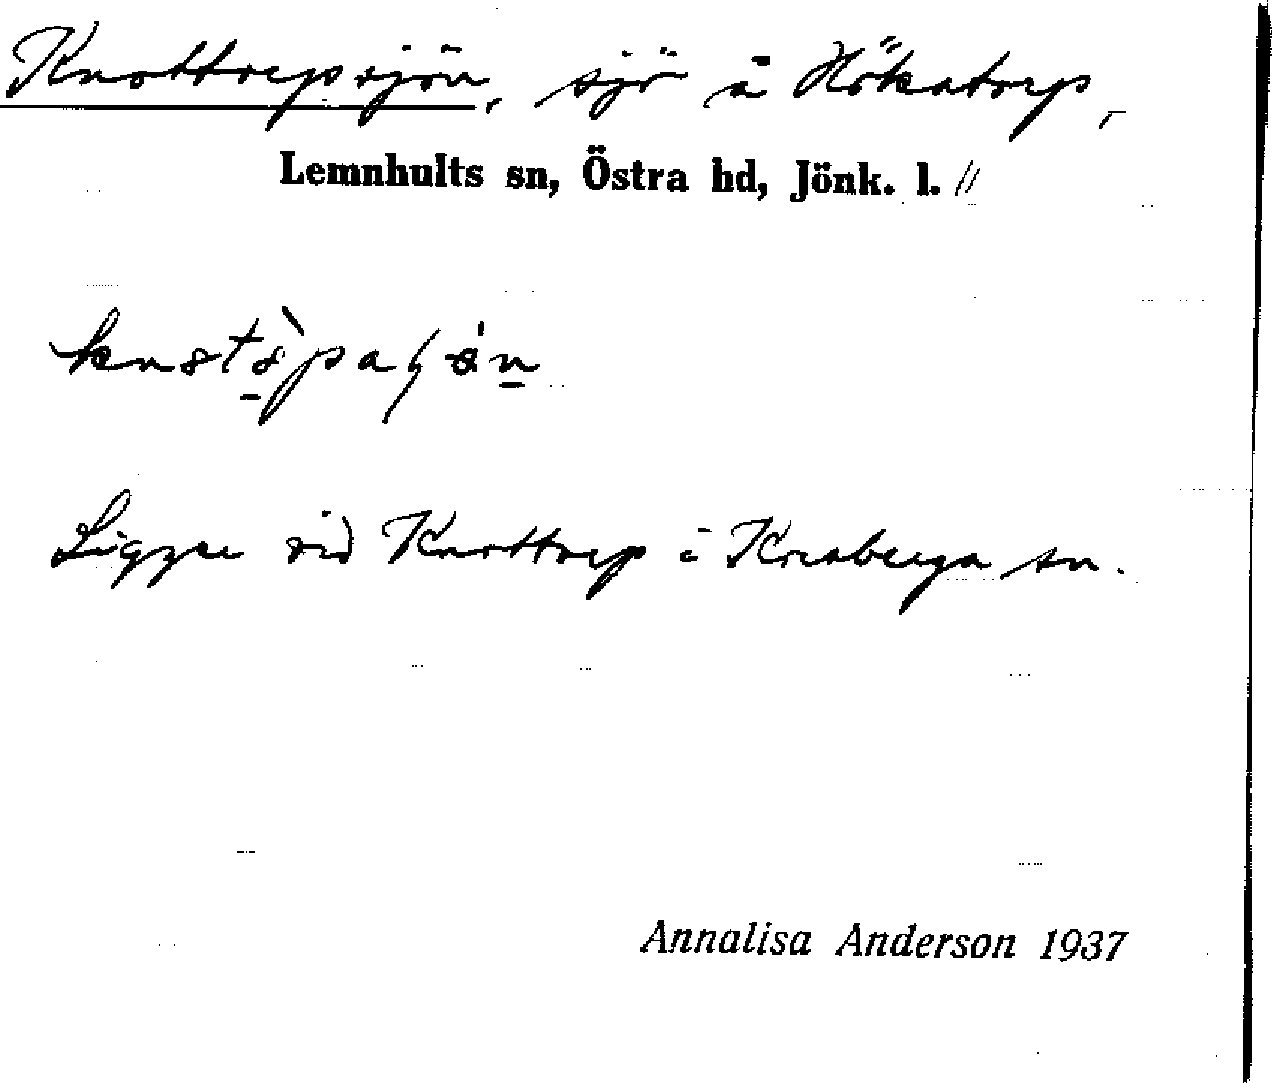 Knottrepsjön, sjö å Hökatorp,
Lemnhults sn, Östra hd, Jönk. l.
Ligger vid Knottrep i Korsberga sn.
Annalisa Anderson 1937